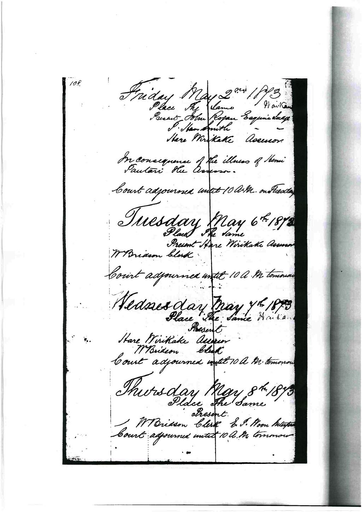 108
Friday May 2nd 1873
Place The Same
Present John Rogan Esquire Judge
Hare Wirikake Assessor
In consequence of the illness of Hemi
Tautari the Assessor.
Court adjourned until 10 A.M. on Tuesday
Tuesday May 6th 1873
Place The Same
Present Hare Wirikake Assessor
W Bridson Clerk
Court adjourned until 10 A.M. tomorrow
Wednesday May 7th 1873
Place The Same
Present
Hare Wirikake Assessor
W Bridson Clerk
Court adjourned until 10 A.M. tomorrow
Thursday May 8th 1873
Place The Same
Present
W Bridson Clerk
Court adjourned until 10 A.M. tomorrow